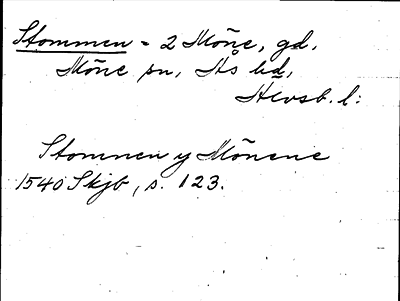 Stommen = 2 Möne, gd.
Möne sn, Ås hd,
Älvsb. l:
Stomnen y Mönene
1540 Skjb, s. 123.